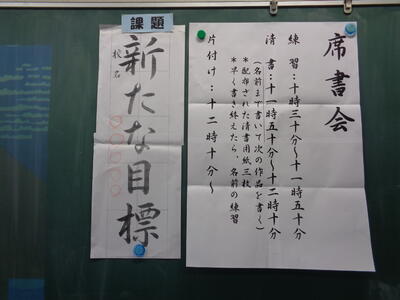 課題
新たな目標
校名
席書会
練習：十時三十分～十一時五十分
清書：十一時五十分～十二時十分
（名前まで書いて次の作品を書く）
＊配布された清書用紙三枚
＊早く書き終えたら、名前の練習
片付け：十二時十分～